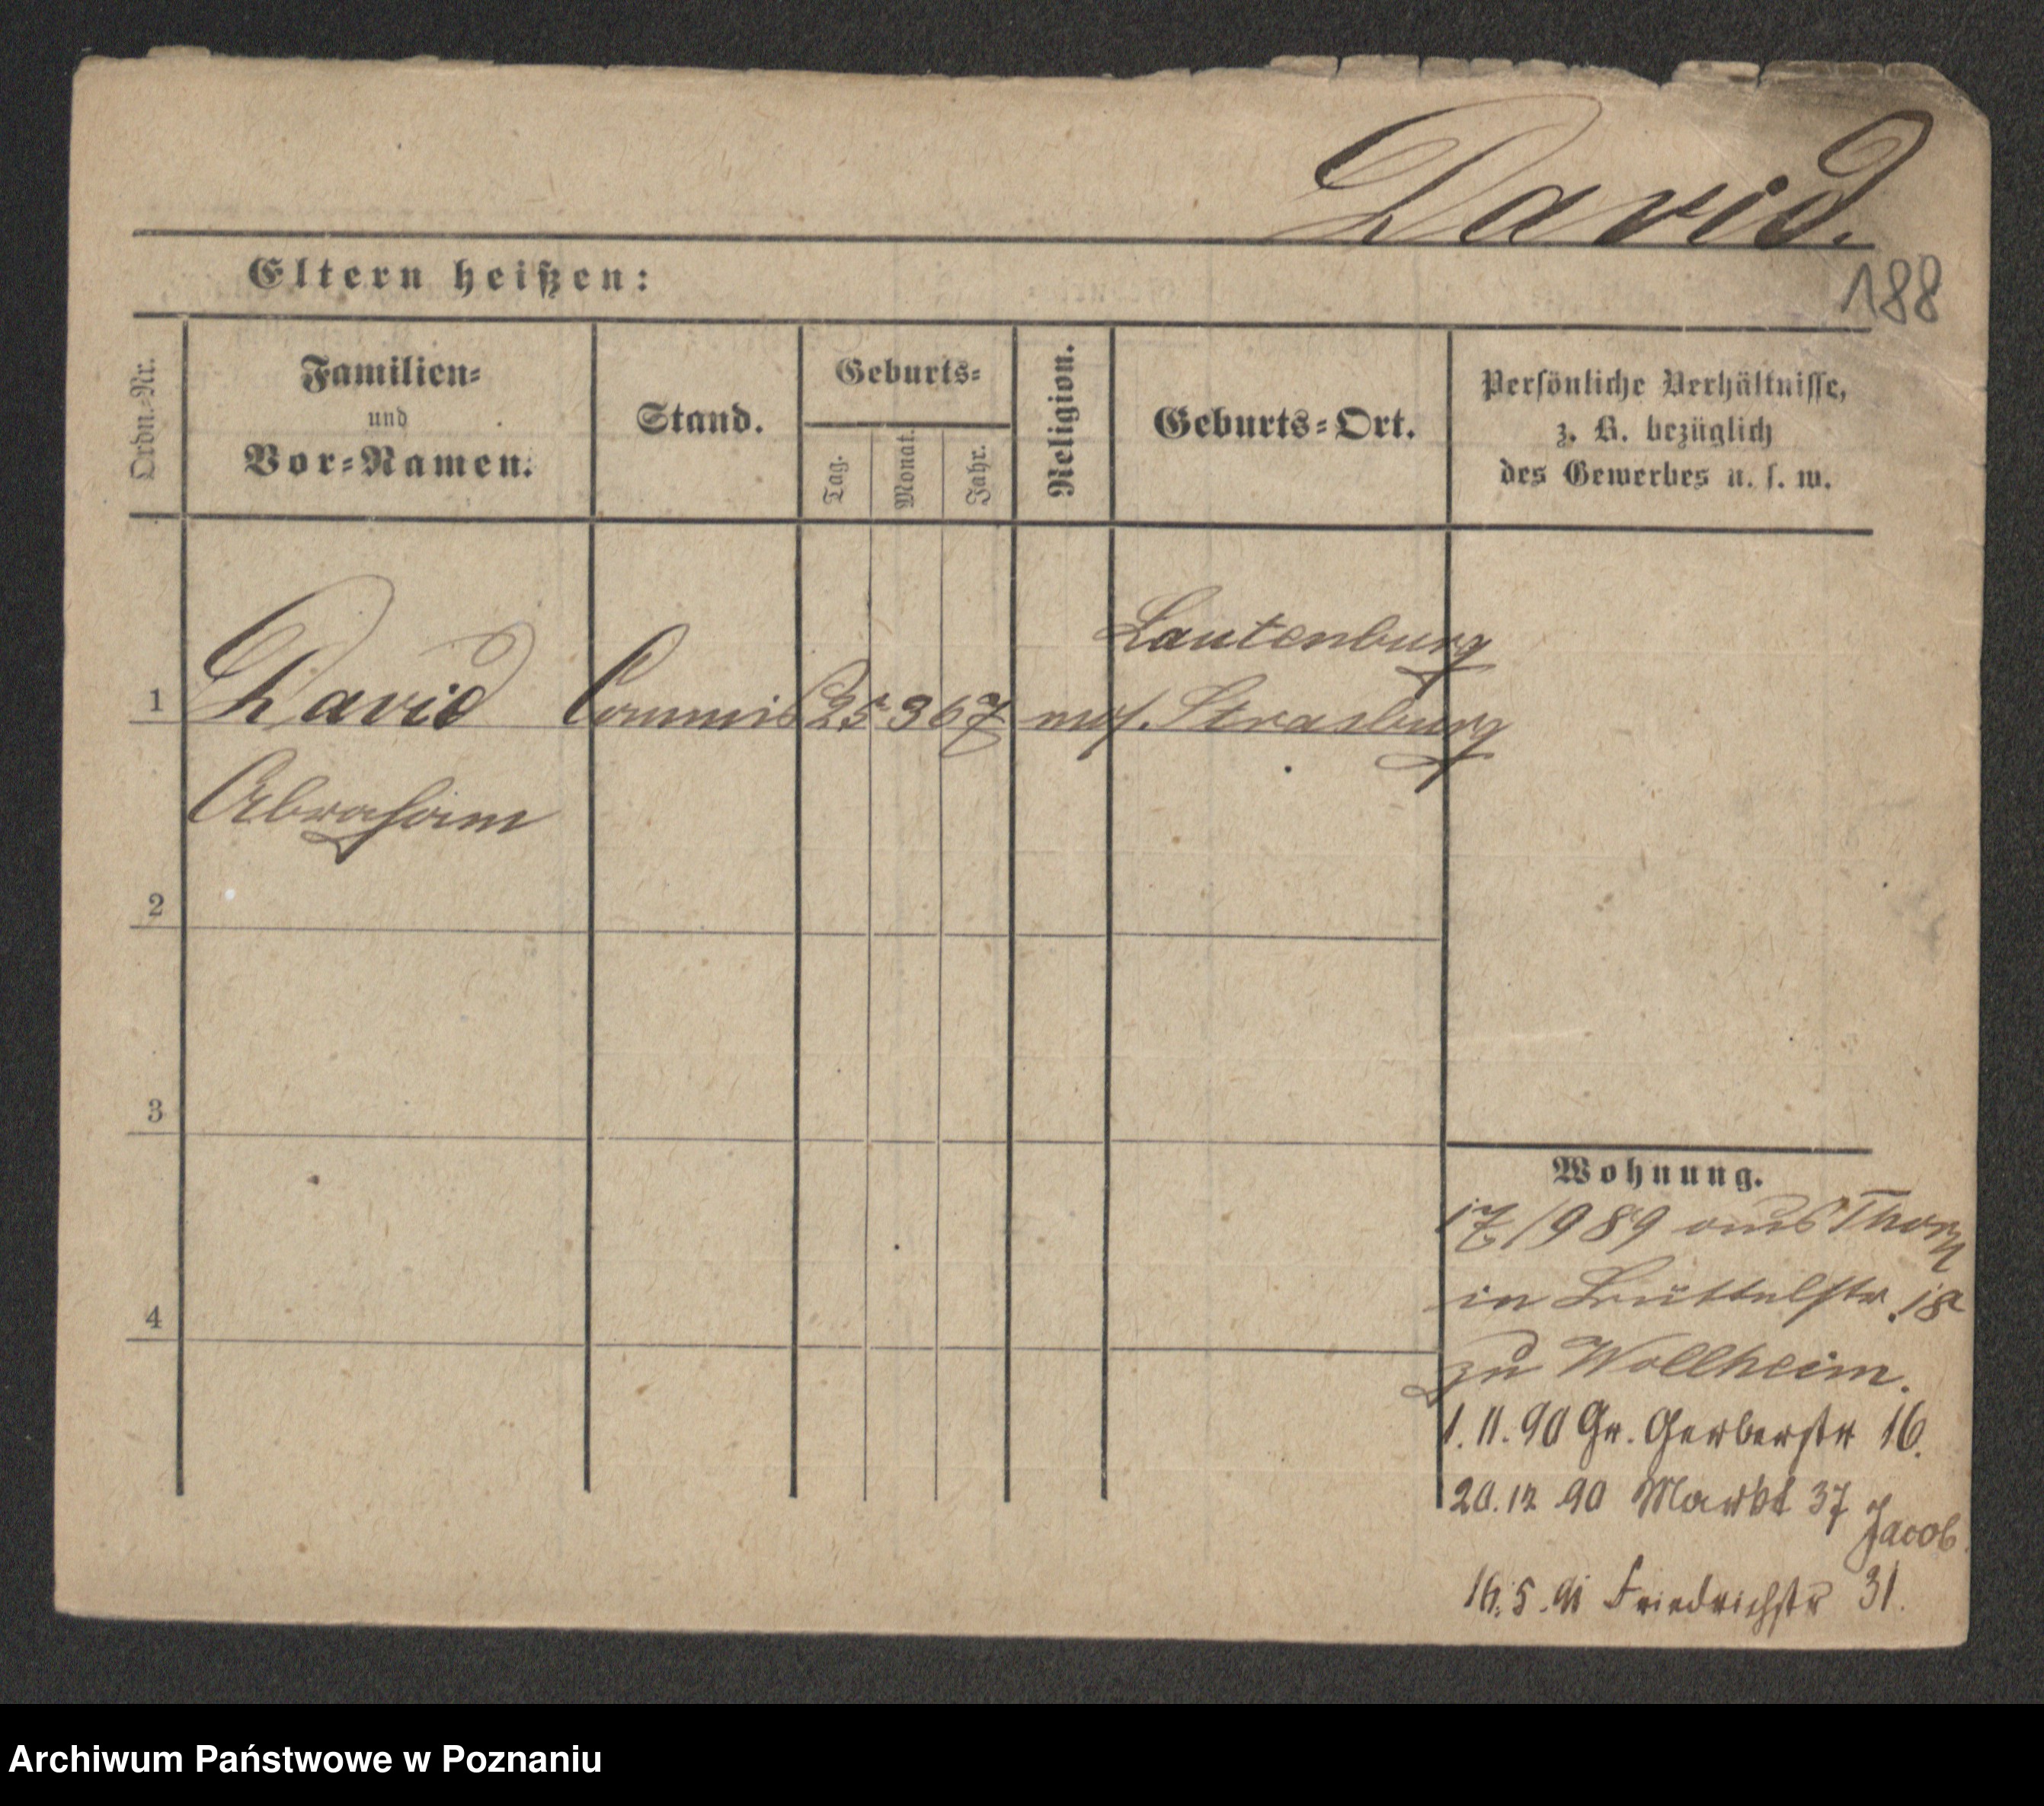 David.
188
Eltern heißen:
Ordn.-Nr.
Familien-
und
Vor-Namen.
Stand.
Geburts-
Tag.
Monat.
Jahr.
Religion.
Geburts-Ort.
Persönliche Verhältnisse,
z. B. bezüglich
des Gewerbes u. s. w.
Lautenburg
1 David Commis 25 3 67 mos. Strasburg
Abraham
2
3
4
Wohnung.
17/9 89 aus Thorn
in Büttelstr. 18
zu Wollheim.
1.11.90 Gr. Gerberstr 16.
20.12 90 Markt 37 Jacob.
16.5.91 Friedrichstr 31.
Archiwum Państwowe w Poznaniu